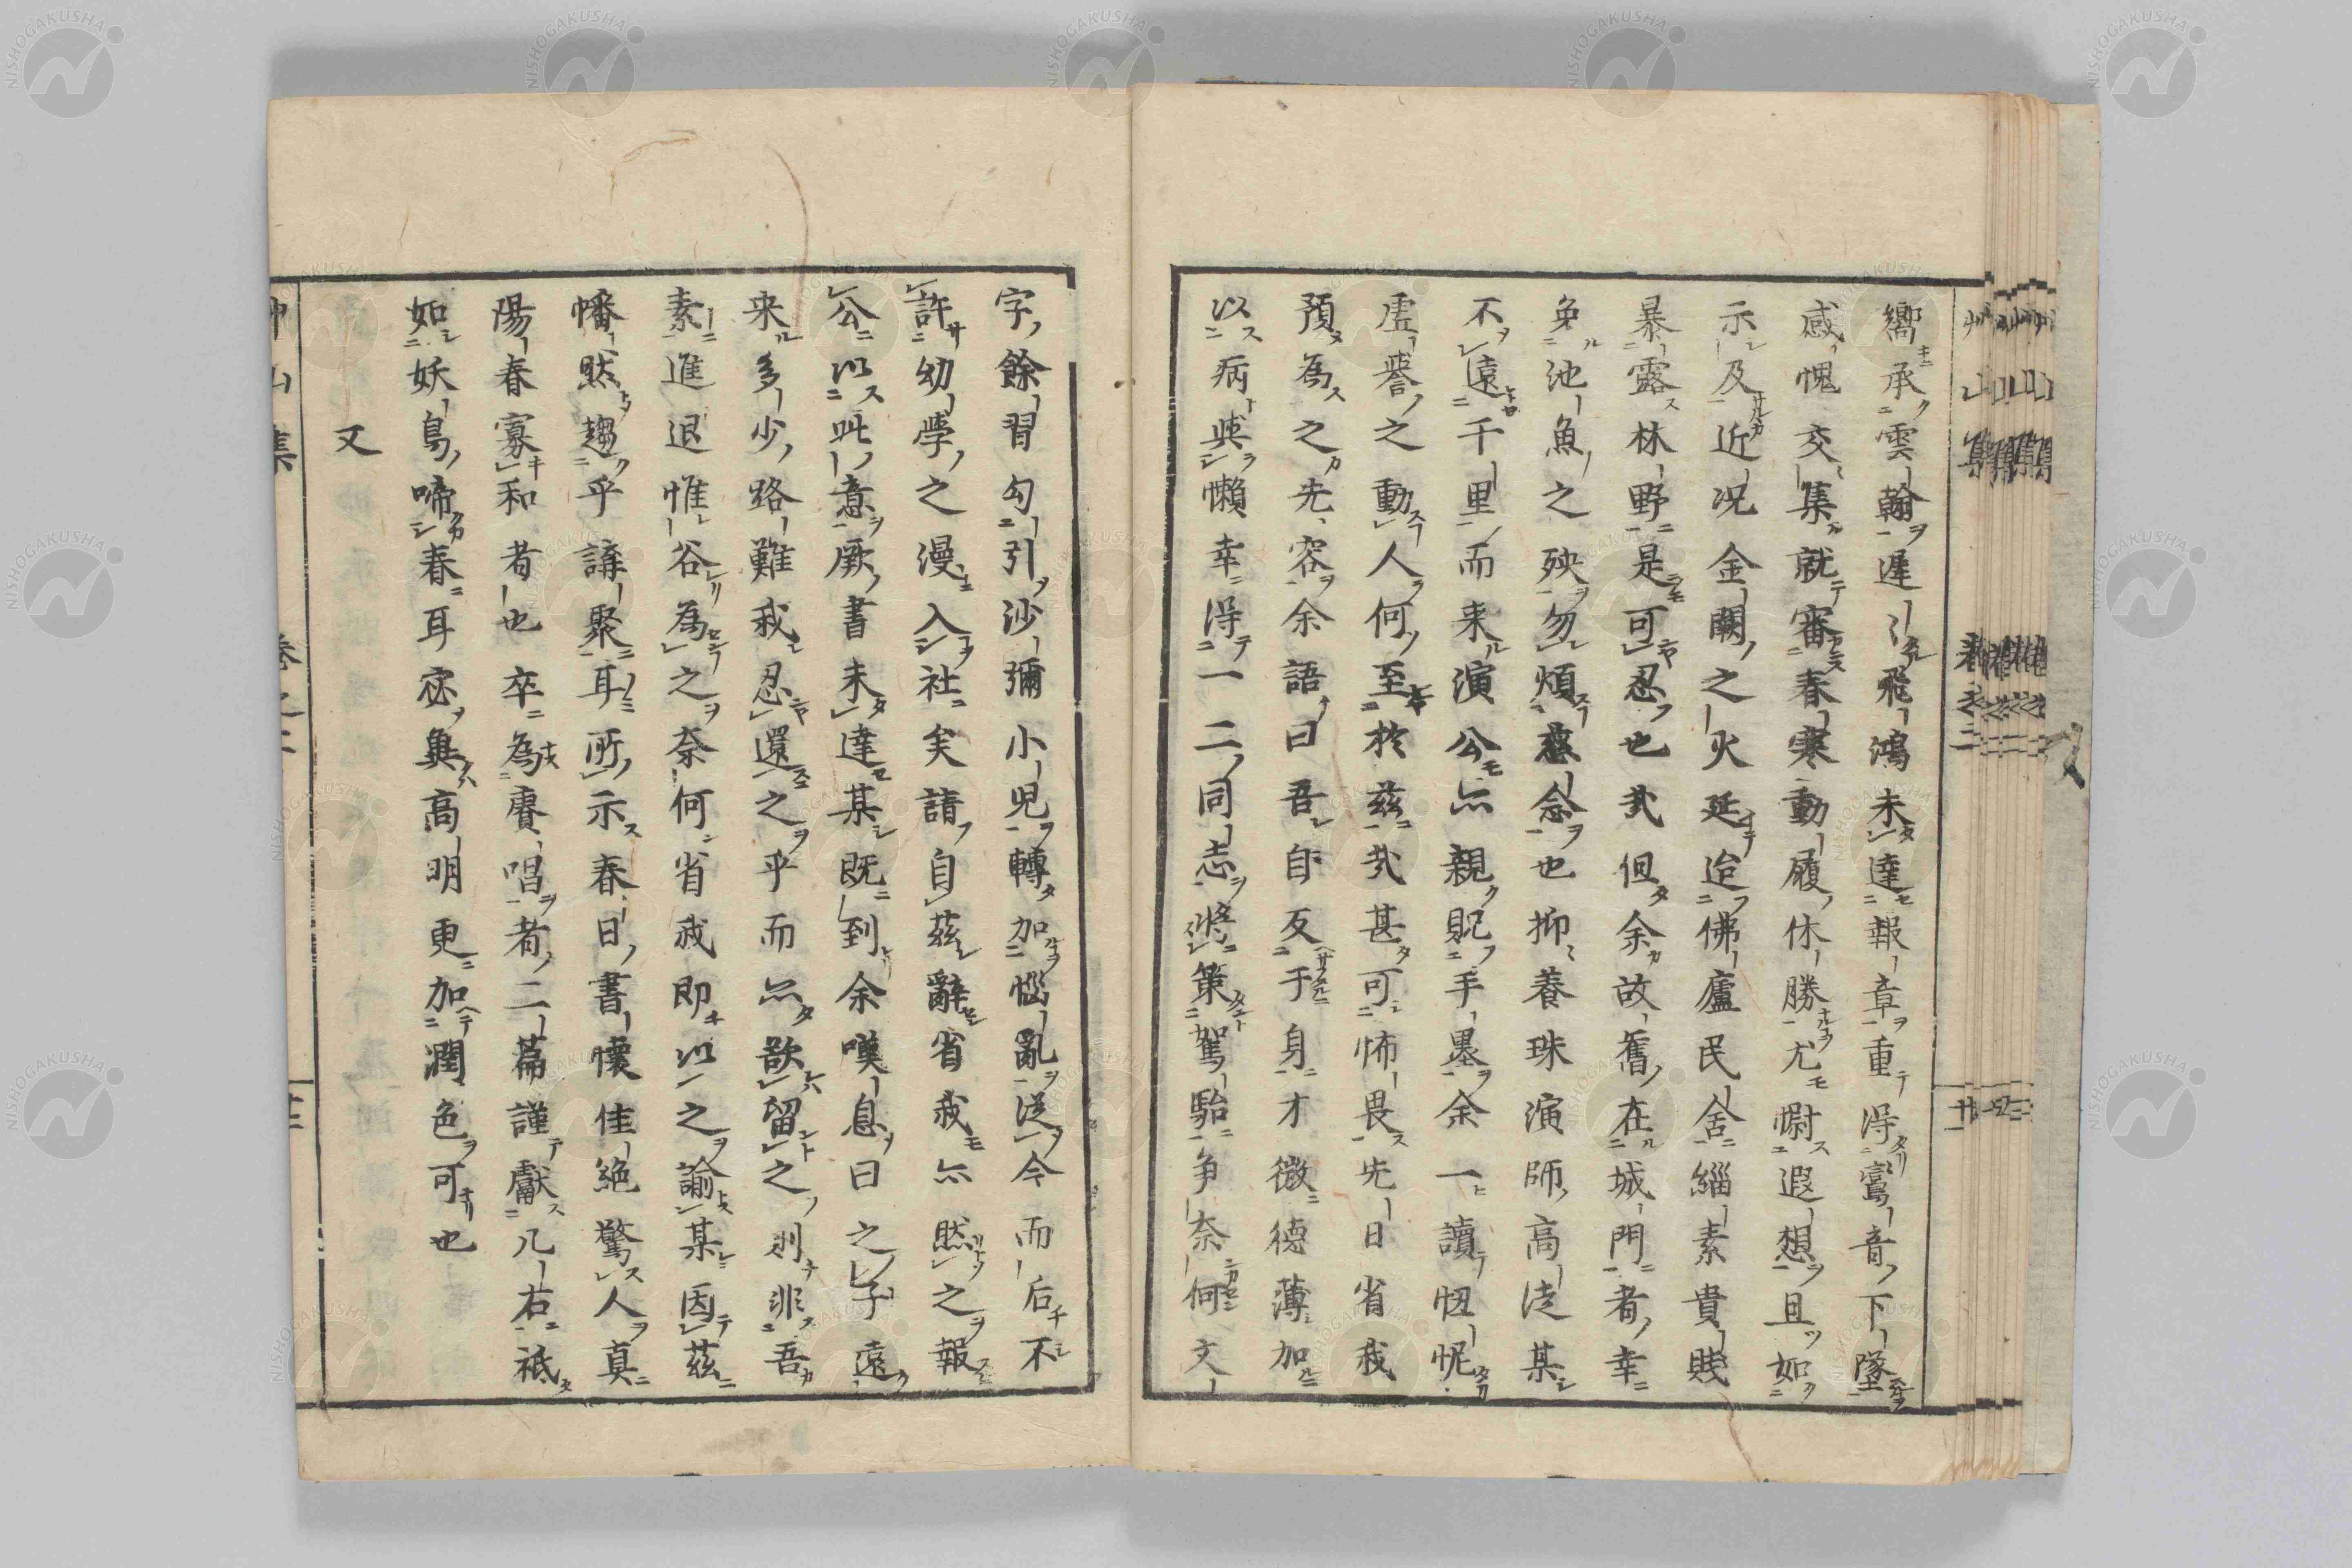 嚮承雲翰遅〻飛鴻未達報章重得鸞音下墜
感愧交集就審春寒動履休勝尤慰遐想且如
示及近況金闕之火延迨佛廬民舍緇素貴賤
暴露林野是可忍也哉但余故舊在城門者幸
免池魚之殃勿煩慈念也抑養珠演師高徒某
不遠千里而来演公亦親貺手墨余一讀忸怩
虚譽之動人何至於茲哉甚可怖畏先日省我
預為之先容余語曰吾自反于身才微德薄加
以病與懶幸得一二同志將策駑駘争奈何文
字餘習勾引沙彌小児轉加惱亂從今而后不
許幼學之漫入社矣請自茲辭省我亦然之報
公以此意厥書未達某既到余嘆息曰之子遠
来多少路難我忍還之乎而亦欲留之則非吾
素進退惟谷為之奈何省我即以之諭某因茲
幡然趨乎講聚耳所示春日書懐佳絶驚人真
陽春寡和者也卒為賡唱者二篇謹獻几右祗
如妖鳥啼春耳宻與高明更加潤色可也
又
山集
巻之二